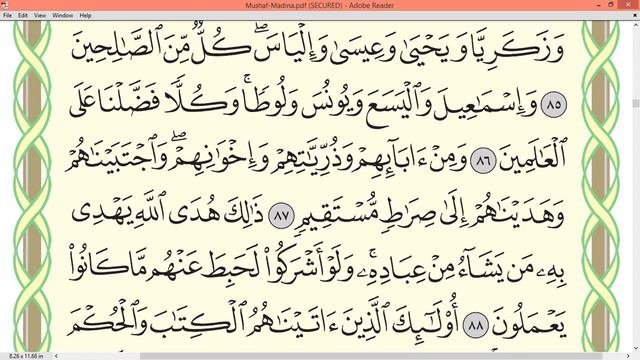 Mushaf-Madina.pdf (SECURED) - Adobe Reader
File Edit View Window Help
وَزَكَرِيَّا وَيَحْيَىٰ وَعِيسَىٰ وَإِلْيَاسَ ۖ كُلٌّ مِّنَ ٱلصَّٰلِحِينَ
٨٥ وَإِسْمَٰعِيلَ وَٱلْيَسَعَ وَيُونُسَ وَلُوطًا ۚ وَكُلًّا فَضَّلْنَا عَلَى
ٱلْعَٰلَمِينَ ٨٦ وَمِنْ ءَابَآئِهِمْ وَذُرِّيَّٰتِهِمْ وَإِخْوَٰنِهِمْ ۖ وَٱجْتَبَيْنَٰهُمْ
وَهَدَيْنَٰهُمْ إِلَىٰ صِرَٰطٍ مُّسْتَقِيمٍ ٨٧ ذَٰلِكَ هُدَى ٱللَّهِ يَهْدِى
بِهِۦ مَن يَشَآءُ مِنْ عِبَادِهِۦ ۚ وَلَوْ أَشْرَكُوا۟ لَحَبِطَ عَنْهُم مَّا كَانُوا۟
يَعْمَلُونَ ٨٨ أُو۟لَٰٓئِكَ ٱلَّذِينَ ءَاتَيْنَٰهُمُ ٱلْكِتَٰبَ وَٱلْحُكْمَ
8.26 x 11.68 in